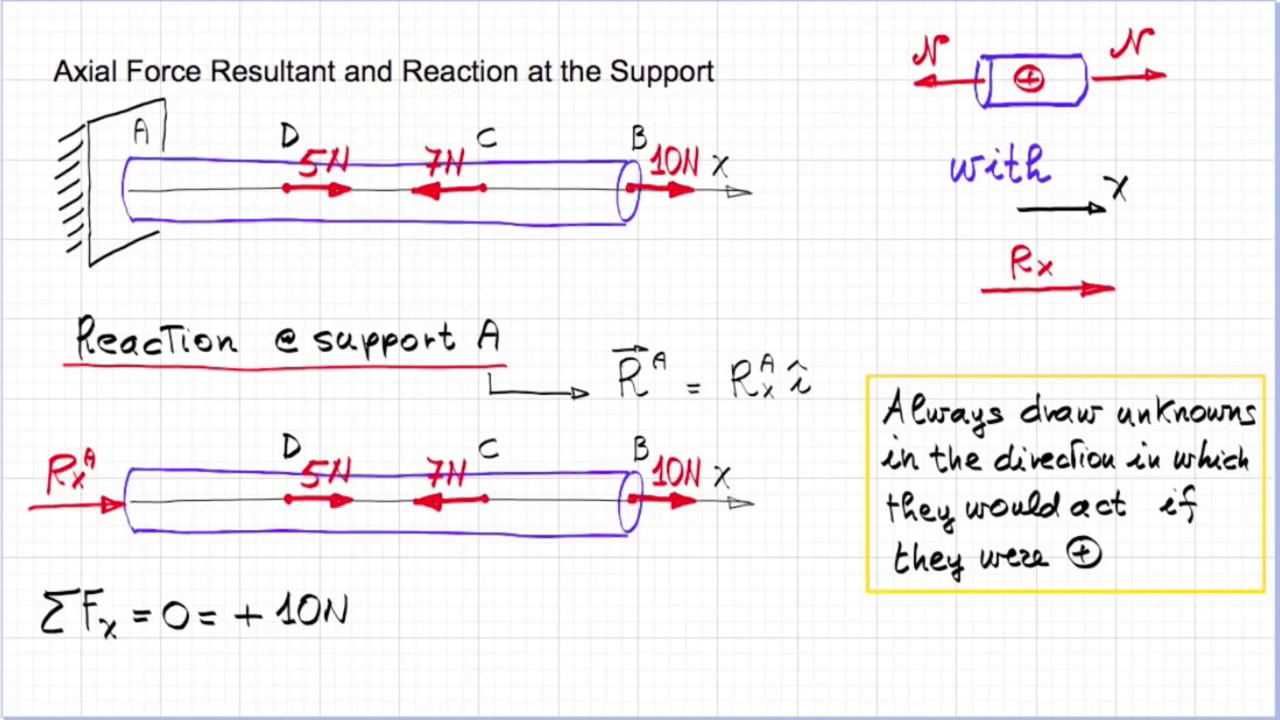 Axial Force Resultant and Reaction at the Support
N ⊕ N
A D 5N 7N C B 10N x
with
x
Rx
Reaction @ support A
R⃗ᴬ = Rₓᴬ î
Rₓᴬ D 5N 7N C B 10N x
Always draw unknowns
in the direction in which
they would act if
they were ⊕
ΣFₓ = 0 = + 10N